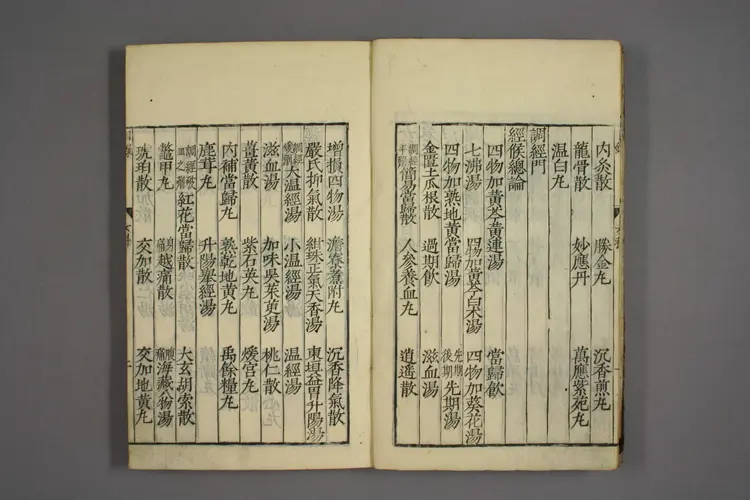 內灸散 勝金丸 沉香煎丸
龍骨散 妙應丹 萬應紫菀丸
溫白丸
調經門
經候總論
四物加黃芩黃連湯 當歸飲
七沸湯 四物加黃芩白朮湯 四物加葵花湯
四物加熟地黃當歸湯 先期後期 先期湯
金匱土瓜根散 過期飲 滋血湯
調經平易 簡易當歸散 人參養血丸 逍遙散
增損四物湯 澹寮煮附丸 沉香降氣散
嚴氏抑氣散 紺珠正氣天香湯 東垣益胃升陽湯
大溫經湯 小溫經湯 溫經湯
滋血湯 加味吳茱萸湯 桃仁散
薑黃散 紫石英丸 煖宮丸
內補當歸丸 蒸乾地黃丸 禹餘糧丸
鹿茸丸 升陽舉經湯
紅花當歸散 越痛散 大玄胡索散
鼈甲丸 海藏八物湯
琥珀散 交加散 交加地黃丸